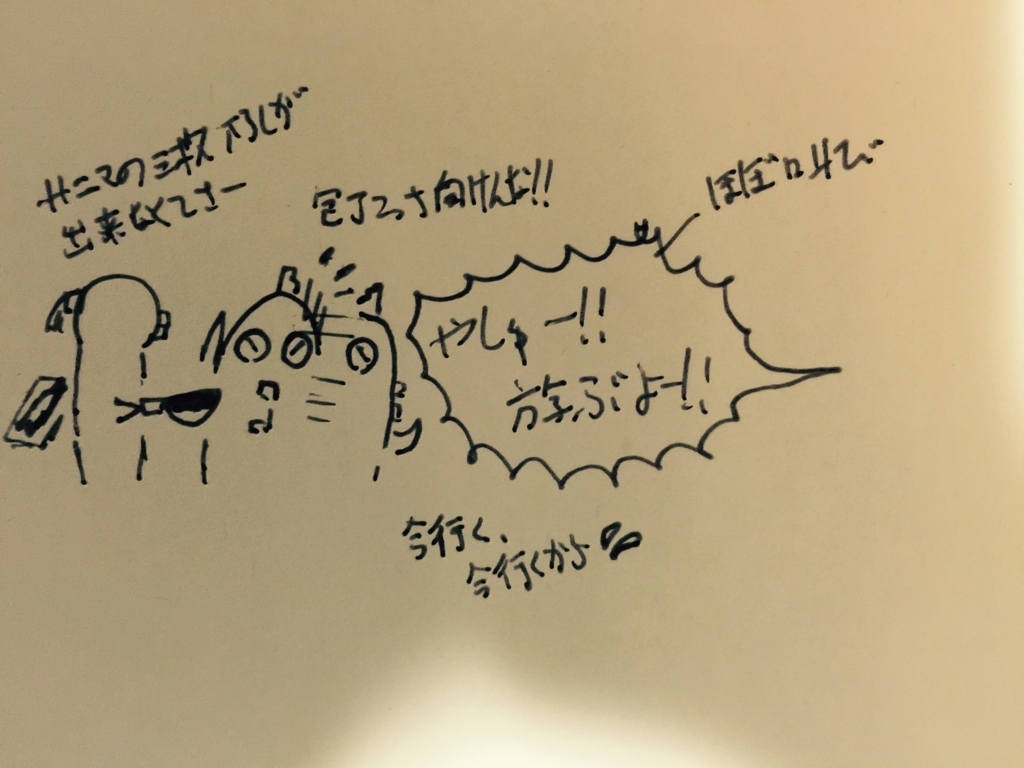 サンマの三枚下ろしが
出来なくてさー
包丁こっち向けんな!!
ほぼ叫で
やしゅー!!
学ぶよー!!
今行く、
今行くから